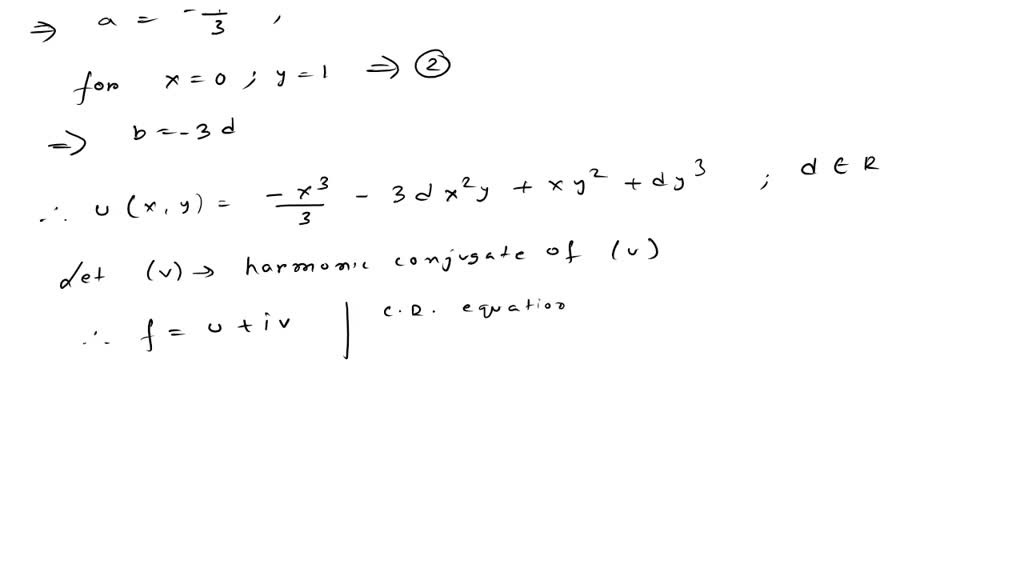 ⇒ a = -1/3 ,
for x = 0 ; y = 1 ⇒ ②
⇒ b = -3d
∴ u (x, y) = -x³/3 - 3dx²y + xy² + dy³ ; d ∈ R
det (v) → harmonic conjugate of (u)
∴ f = u + iv | C.R. equation